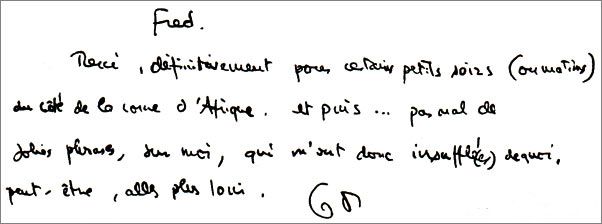 Fred.
Merci, définitivement pour certains petits soirs (ou matins)
du côté de la corne d'Afrique. et puis ... pas mal de
jolies phrases, sur moi, qui m'ont donc insufflé(es) de quoi,
peut-être, aller plus loin.